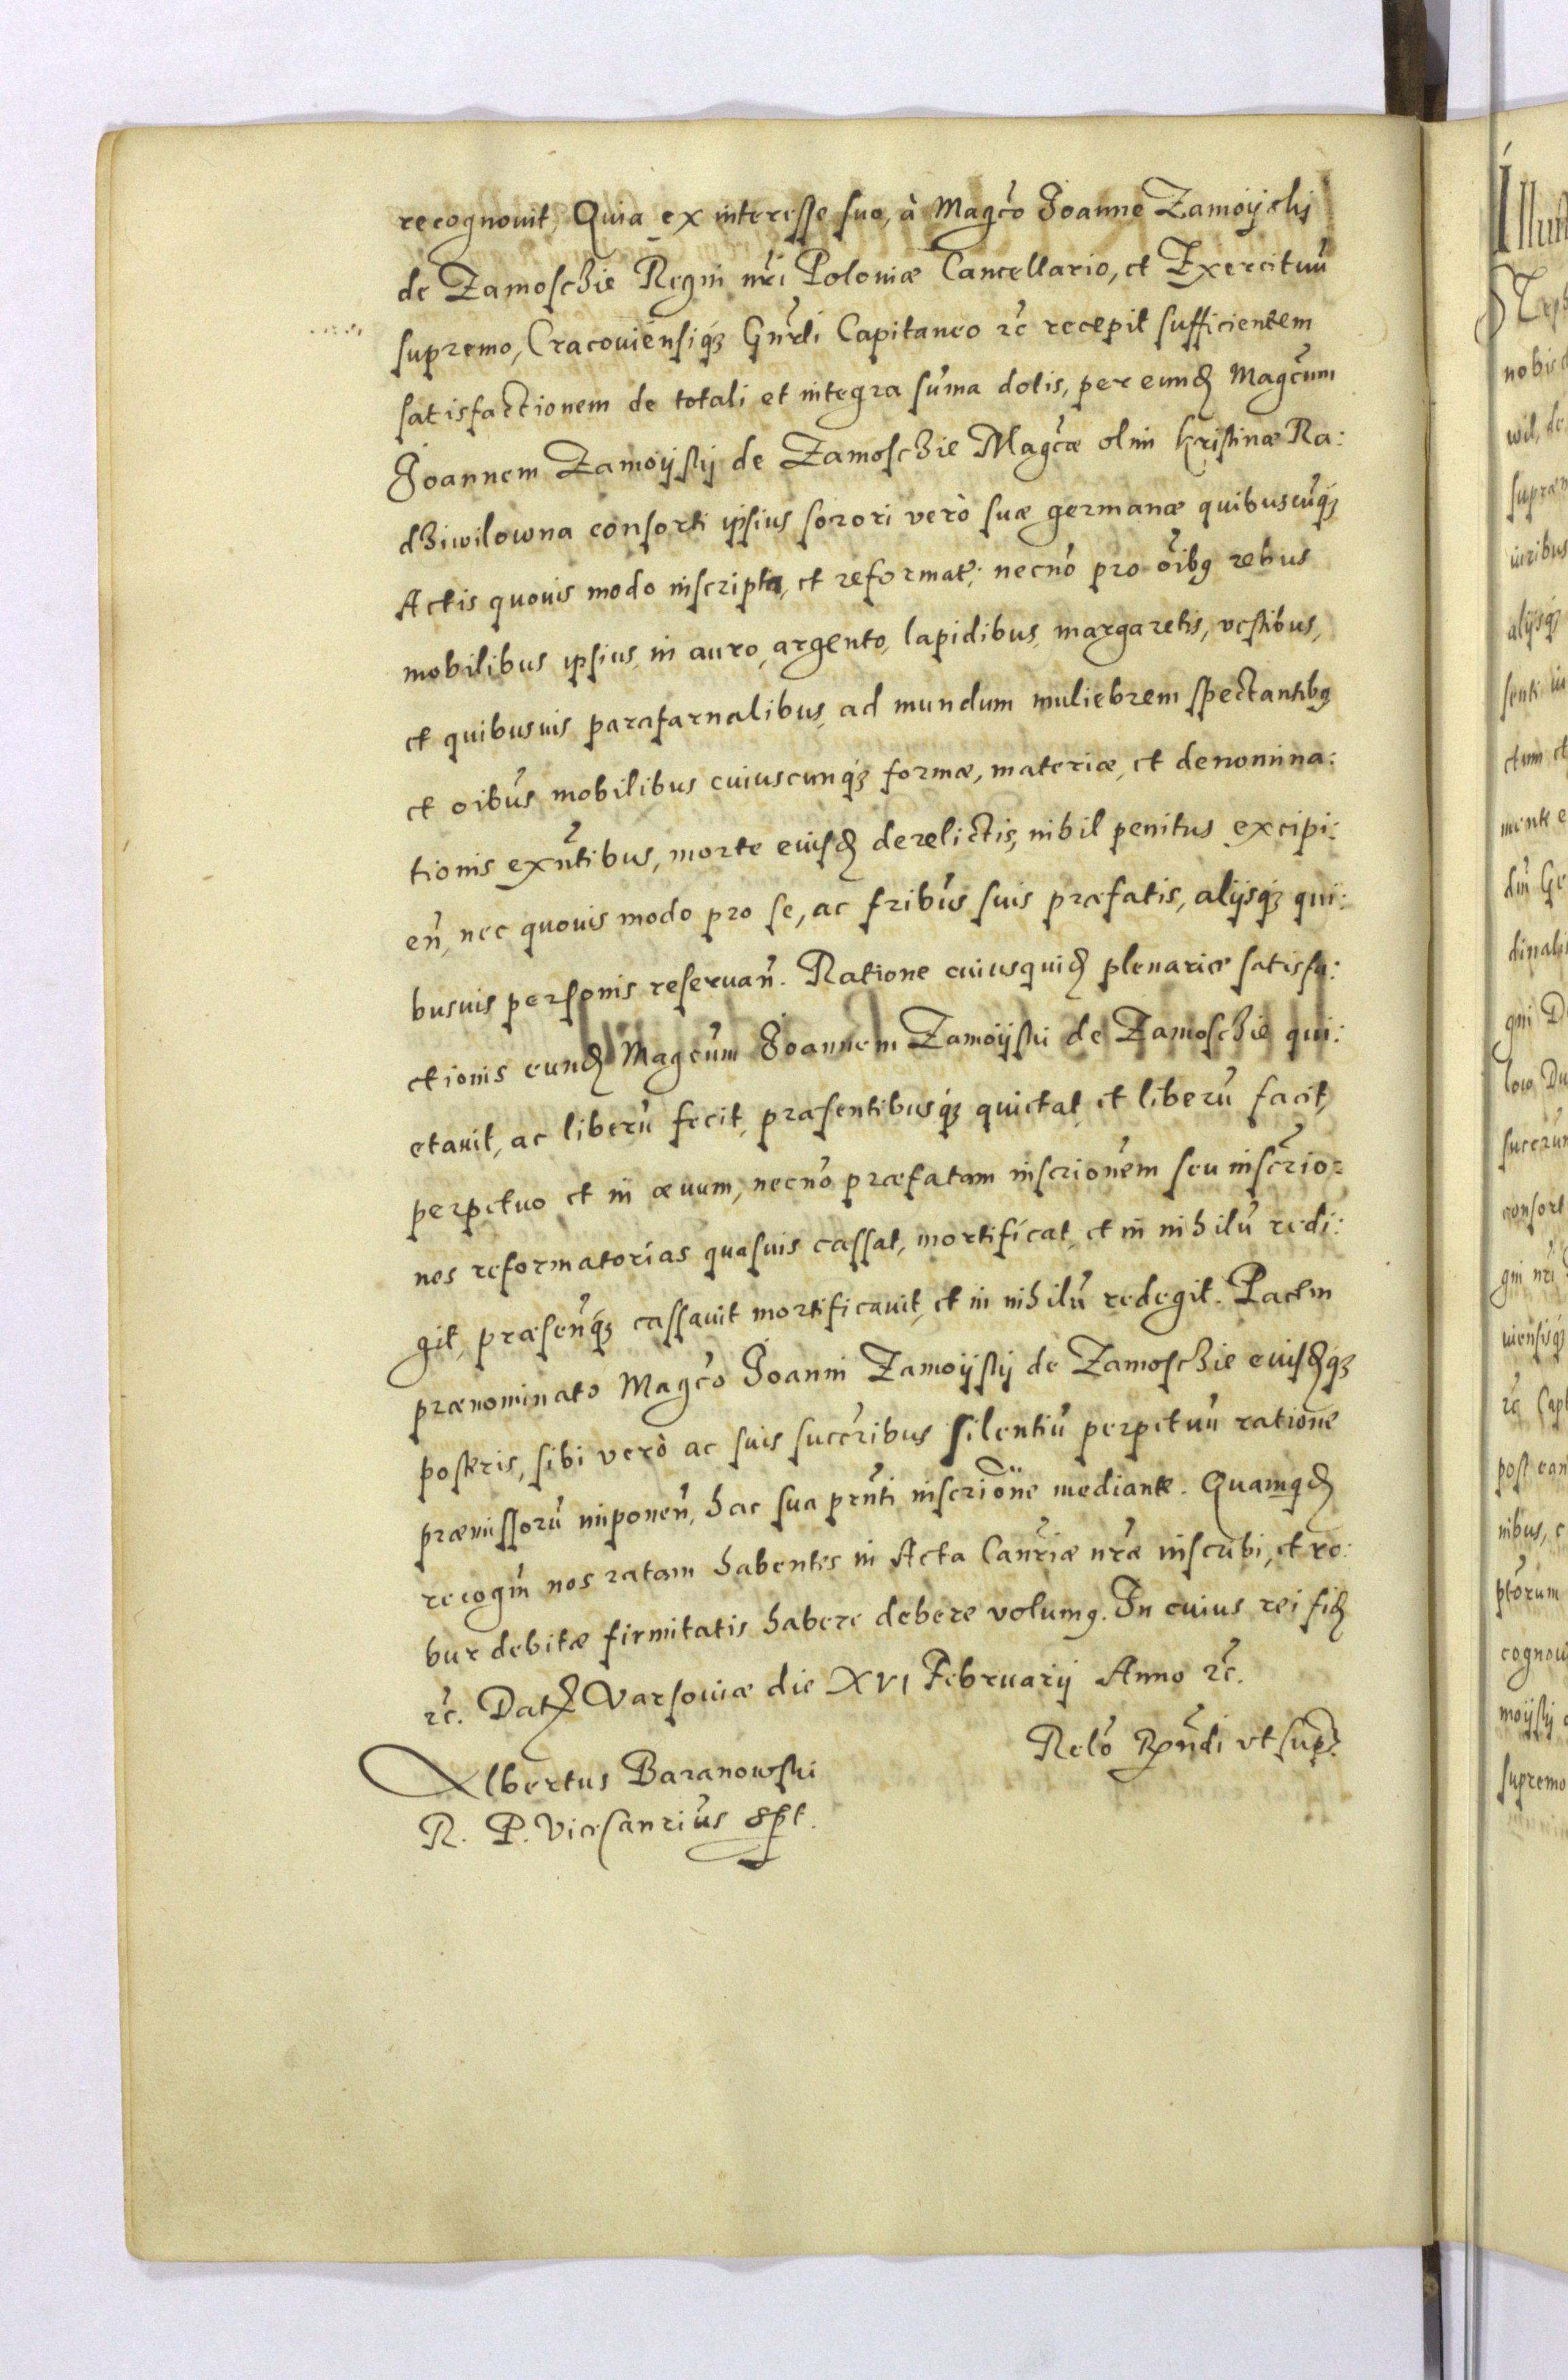 recognouit, Quia ex interesse suo, à Magco Joanne Zamoyski
de Zamoschie Regni nri Poloniæ Cancellario, et Exercituu
supremo, Cracouiensiq3 Gnrli Capitaneo rc recepit sufficientem
satisfactionem de totali et integra suma dotis, per eund Magcum
Joannem Zamoyskij de Zamoschie Magcæ olim Kristinæ Ra:
dziwilowna consorti ipsius sorori verò suæ germanæ quibuscuq3
Actis quouis modo inscripta, et reformat; necno pro oibg rebus
mobilibus ipsius, in auro, argento, lapidibus, margaretis, vestibus,
et quibusuis parafarnalibus, ad mundum muliebrem spectantibg
et oibus mobilibus cuiuscunq3 formæ, materiæ, et denomina:
tionis exntibus, morte eiusd derelictis, nihil penitus excipi:
en, nec quouis modo pro se, ac fribus suis præfatis, alijsq3 qui:
busuis personis reseruan. Ratione cuiusquid plenariæ satisfa:
ctionis eund Magcum Joannem Zamoyski de Zamoschie qui:
etauit, ac liberu fecit, præsentibusq3 quietat, et liberu facit,
perpetuo et in æuum, necno præfatam inscrionem seu inscrio:
nes reformatorias quasuis cassat, mortificat, et in nihilu redi:
git, præsenq3 cassauit mortificauit, et in nihilu redegit. Pacem
prænominato Magco Joanni Zamoyskij de Zamoschie eiusdq3
posteris, sibi verò ac suis succribus silentiu perpetuu ratione
præmissoru imponen, hac sua prnti inscrione mediante. Quamqd
recogin nos ratam habentes in Acta Canriæ nræ inscribi, et ro:
bur debitæ firmitatis habere debere volumg. In cuius rei fid
rc. Dat Varsouiæ die XVI Februarij Anno rc.
Relo Rndi vt supr
Albertus Baranowski
R. P. Vicecanrius sspt.